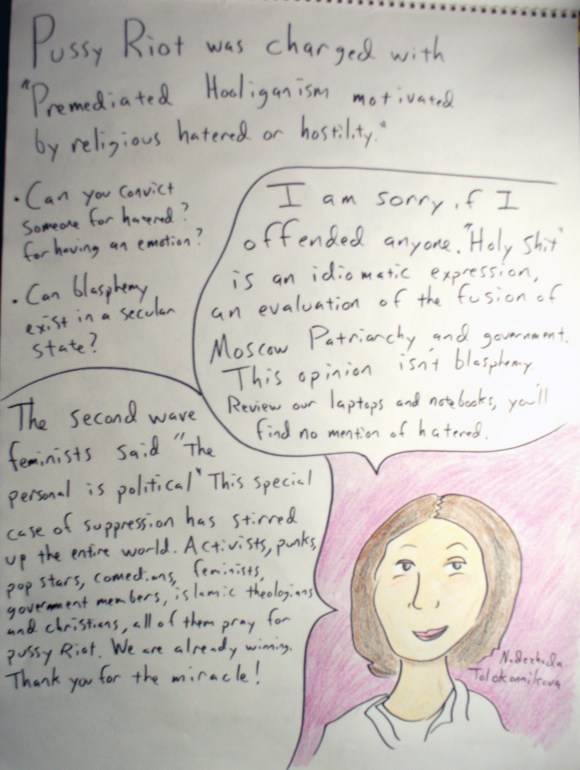 Pussy Riot was charged with
"Premediated Hooliganism motivated
by religious hatered or hostility."
• Can you convict
someone for hatered?
for having an emotion?
• Can blasphemy
exist in a secular
state?
I am sorry if I
offended anyone. "Holy shit"
is an idiomatic expression,
an evaluation of the fusion of
Moscow Patriarchy and government.
This opinion isn't blasphemy
Review our laptops and notebooks, you'll
find no mention of hatered.
The second wave
feminists said "The
personal is political" This special
case of suppression has stirred
up the entire world. Activists, punks,
pop stars, comedians, feminists,
government members, islamic theologians
and christians, all of them pray for
pussy Riot. We are already winning.
Thank you for the miracle!
Nadezhda
Tolokonnikova